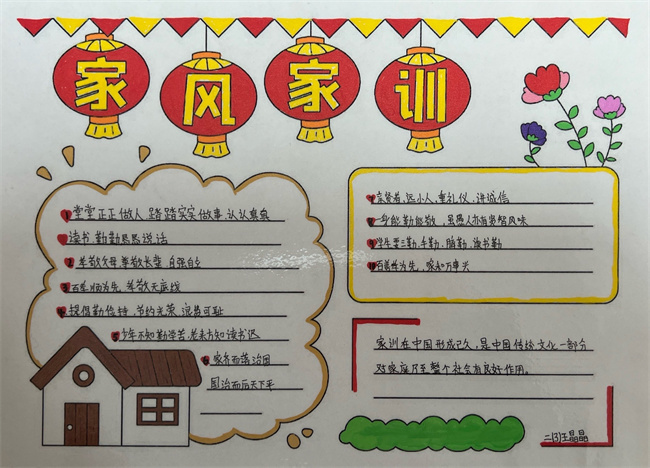 家风家训
1 堂堂正正做人 踏踏实实做事 认认真真
读书 勤勤恳恳说法
2 孝敬父母 尊敬长辈 自强自立
3 百年顺为先 孝敬无底线
4 提倡勤俭持 节约光荣 浪费可耻
5 少年不知勤学苦 老来方知读书迟
6 家齐而后治国
国治而后天下平
7 亲贤者 远小人 重礼仪 讲诚信
8 一身能勤能敬 虽愚人亦有贤智风味
9 学生要三勤 手勤 脑勤 读书勤
10 百善孝为先 家和万事兴
家训在中国形成已久,是中国传统文化一部分
对家庭乃至整个社会有良好作用。
二(3)汪晶晶